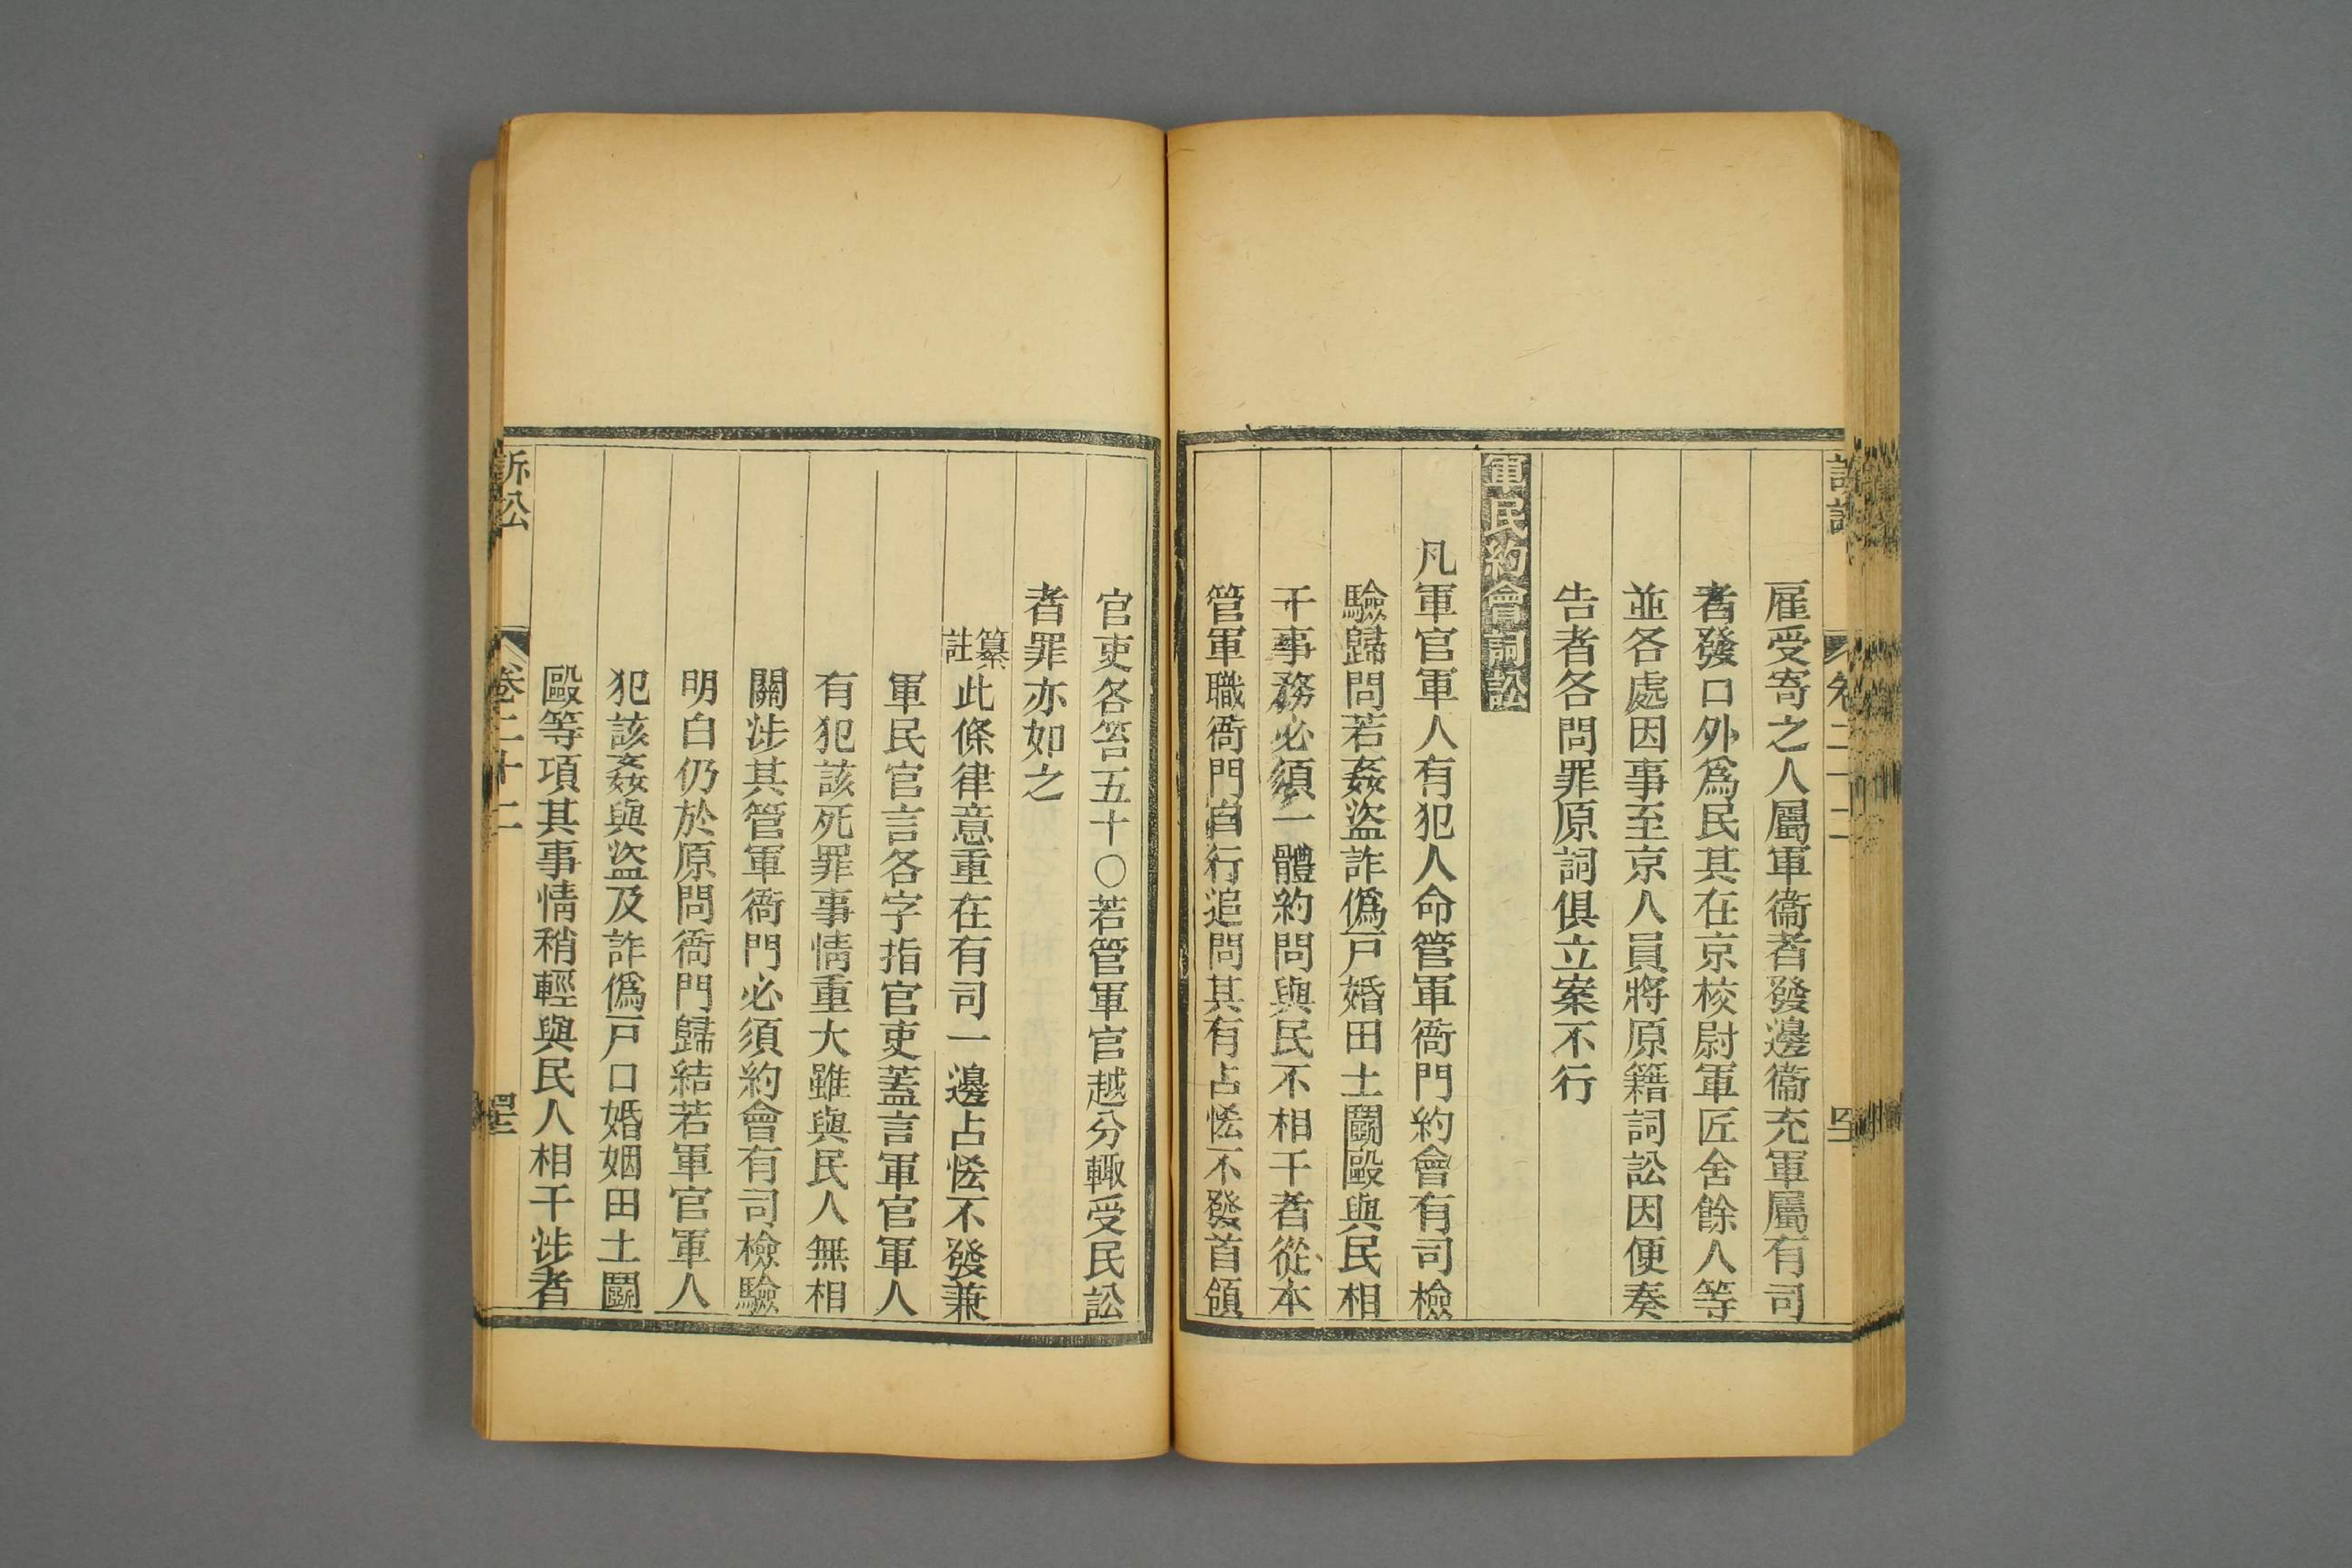 雇受寄之人屬軍衞者發邊衞充軍屬有司
者發口外爲民其在京校尉軍匠舍餘人等
並各處因事至京人員將原籍詞訟因便奏
告者各問罪原詞俱立案不行
軍民約會詞訟
凡軍官軍人有犯人命管軍衙門約會有司檢
驗歸問若姦盜詐僞戸婚田土鬬毆與民相
干事務必須一體約問與民不相干者從本
管軍職衙門自行追問其有占恡不發首領
官吏各笞五十○若管軍官越分輙受民訟
者罪亦如之
纂註此條律意重在有司一邊占恡不發兼
軍民官言各字指官吏蓋言軍官軍人
有犯該死罪事情重大雖與民人無相
關涉其管軍衙門必須約會有司檢驗
明白仍於原問衙門歸結若軍官軍人
犯該姦與盜及詐僞戸口婚姻田土鬬
毆等項其事情稍輕與民人相干涉者
訴訟 卷二十二